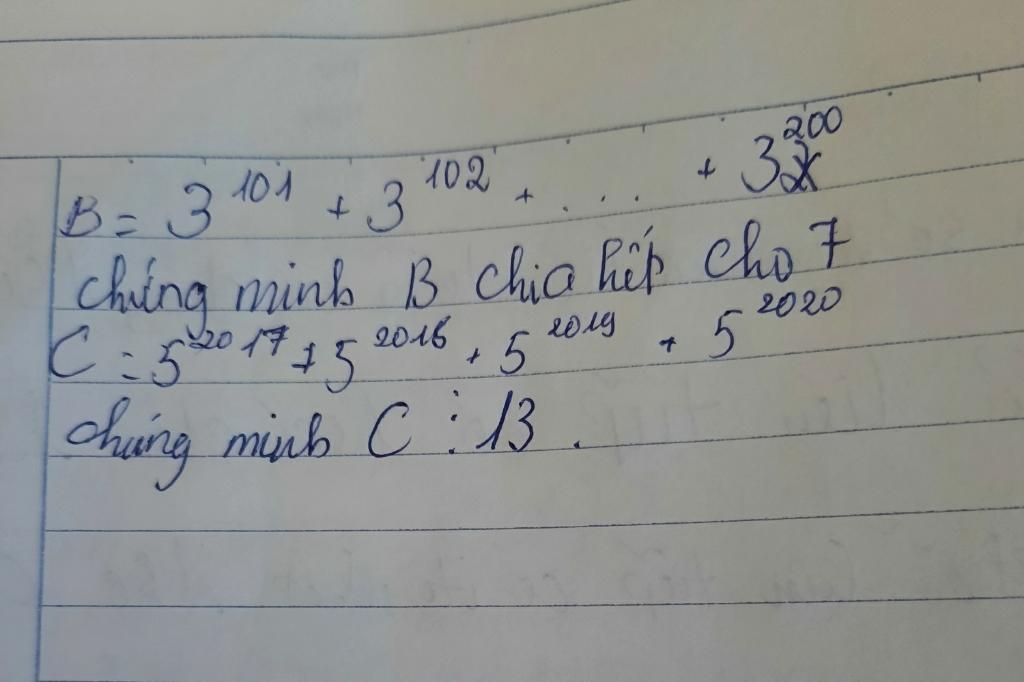 B = 3^101 + 3^102 + . . . + 3^200
chứng minh B chia hết cho 7
C = 5^2017 + 5^2018 + 5^2019 + 5^2020
chứng minh C ⋮ 13 .